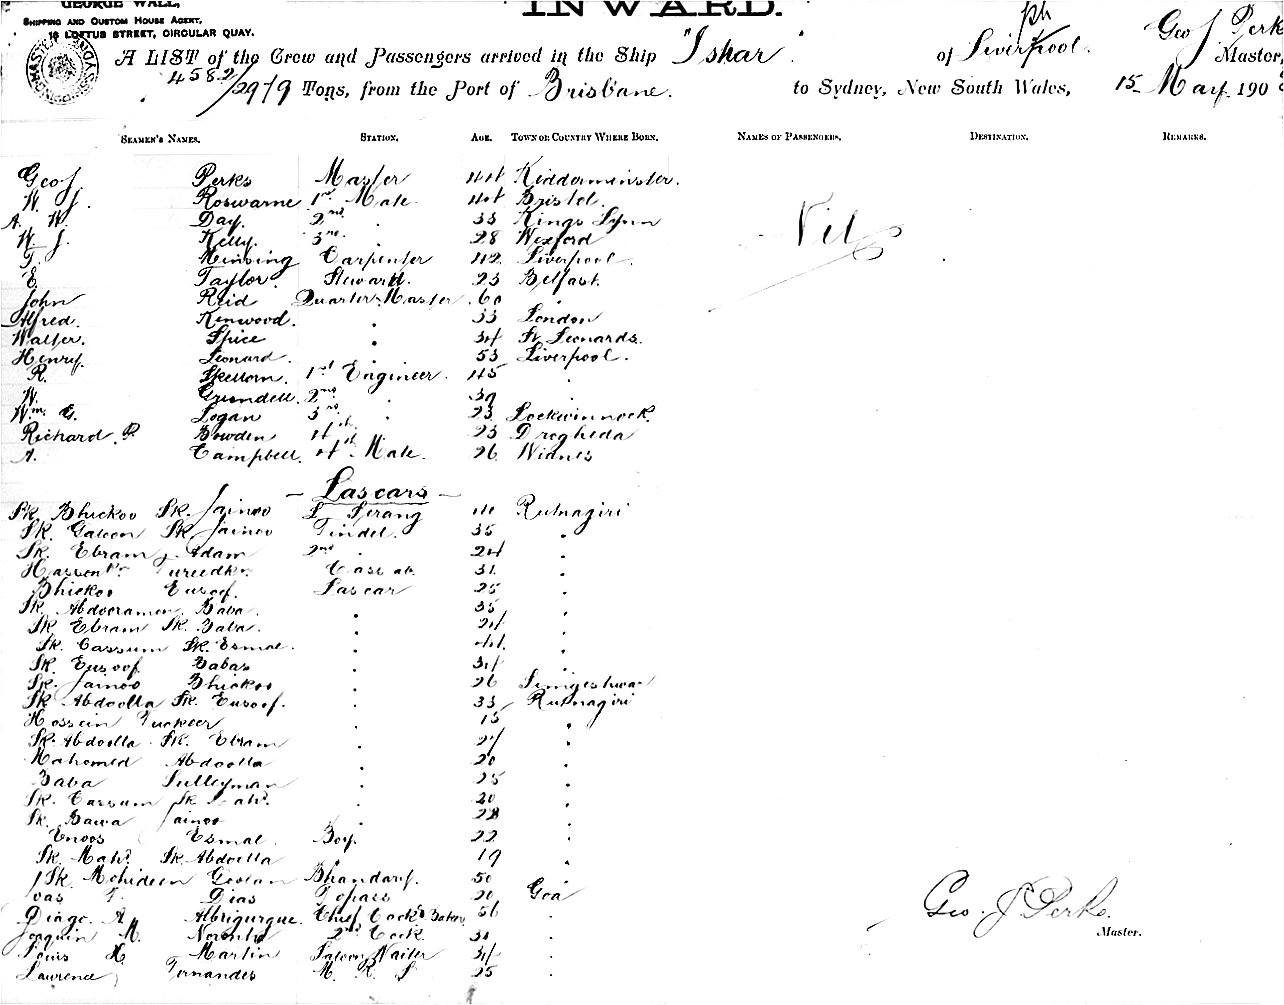 GEORGE WALL,
INWARD.
SHIPPING AND CUSTOM HOUSE AGENT,
16 LOFTUS STREET, CIRCULAR QUAY.
A LIST of the Crew and Passengers arrived in the Ship "Ishar" of Liverpool. Geo J Perks Master,
4582/2919 Tons, from the Port of Brisbane. to Sydney, New South Wales, 15 May 190
SEAMEN'S NAMES. STATION. AGE. TOWN OR COUNTRY WHERE BORN. NAMES OF PASSENGERS. DESTINATION. REMARKS.
Geo J. Perks Master 44 Kidderminster.
W. J. Roswarne 1st Mate 44 Bristol.
A. W. Day. 2nd " 33 Kings Lynn
Nil
W. J. Kelly. 3rd " 28 Wexford
T. Carpenter 42 Liverpool.
E. Taylor. Steward. 23 Belfast.
John Reid Quarter-Master. 60 "
Alfred. Kenwood. " 33 London
Walter. Spice " 34 St Leonards.
Henry. Leonard. " 53 Liverpool.
R. 1st Engineer. 45 "
W. Grundell. 2nd " 39 "
Wm. G. Logan 3rd " 23 Lochwinnock.
Richard. P. Bowden 4th " 23 Drogheda
A. Campbell. 4th Mate. 26 Widnes
— Lascars —
Sk. Bhickoo Sk. Jainoo Serang 44 Rutnagiri
Sk. Gafoor Sk. Jainoo Tindel. 35 "
Sk. Ebram Adam 2nd " 24 "
Cassab. 31 "
Bhickoo Eusoof. Lascar 25 "
Sk. Abdooramon. Baba. " 35 "
Sk. Ebram Sk. Baba. " 24 "
Sk. Cassum Sk. Esmal. " 41. "
Sk. Eusoof. Babas " 34 "
Sk. Jainoo Bhickoo " 26
Sk. Abdoolla Sk. Eusoof. " 33 Rutnagiri
Hossein " 15 "
Sk. Abdoolla. Sk. Ebram " 27 "
Mahomed Abdoolla " 20 "
Baba Sulleyman " 25 "
Sk. Cassum Sk. " 20 "
Sk. Bawa Jainoo " 28 "
Enoos Esmal. Boy. 22 "
Sk. Mahd. Sk. Abdoolla 19 "
Sk. Mohideen Goolam Bhandary. 50 "
Dias Topass 20 Goa
Diago. A Albuquerque. Chief Cook & Baker 56 "
Joaquin M. Noronha 2nd Cook. 30 "
Louis X. Martin Saloon Waiter 34 "
Lawrence Fernandes M. R. S 25 "
Geo. J Perks.
Master.